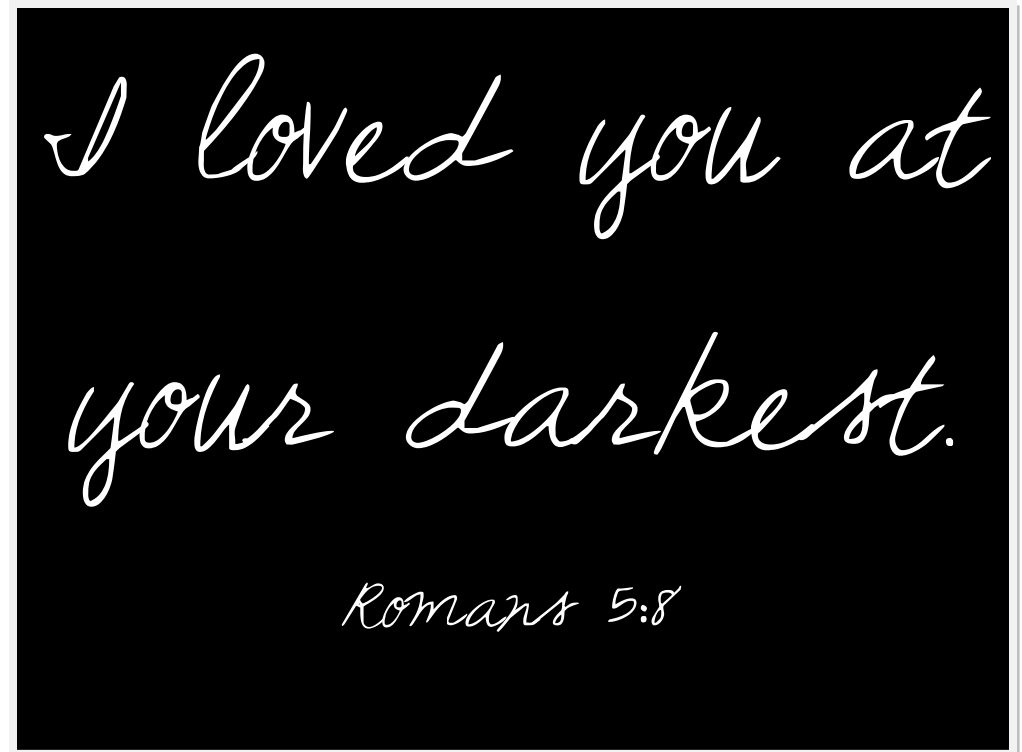 I loved you at
your darkest.
Romans 5:8